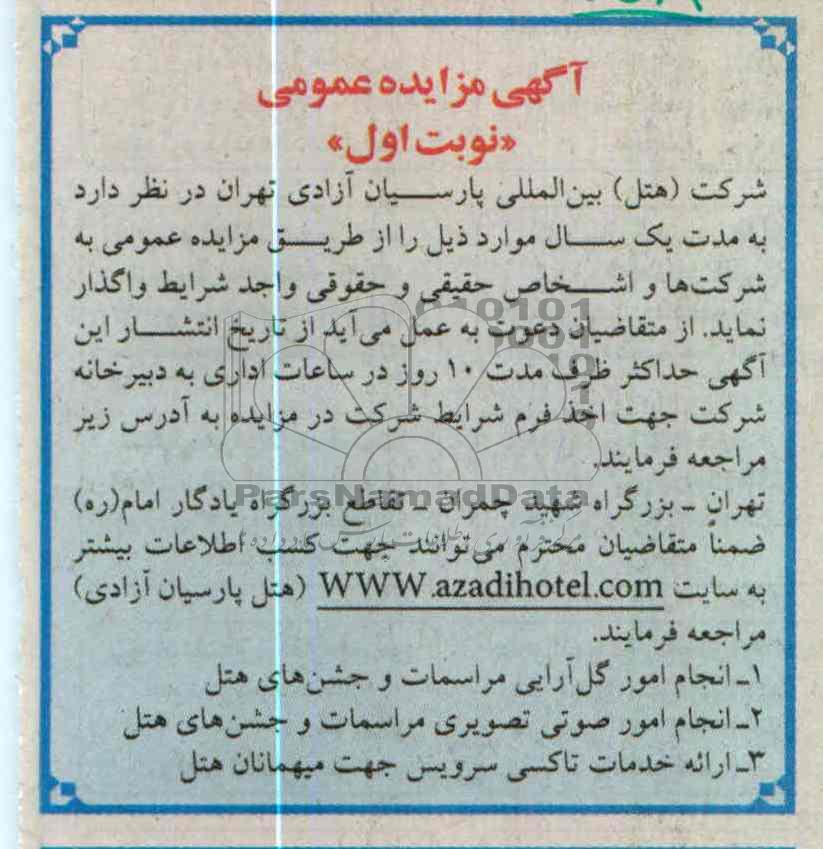 آگهی مزایده عمومی
«نوبت اول»
شرکت (هتل) بین‌المللی پارسیان آزادی تهران در نظر دارد
به مدت یک سال موارد ذیل را از طریق مزایده عمومی به
شرکت‌ها و اشخاص حقیقی و حقوقی واجد شرایط واگذار
نماید. از متقاضیان دعوت به عمل می‌آید از تاریخ انتشار این
آگهی حداکثر ظرف مدت ۱۰ روز در ساعات اداری به دبیرخانه
شرکت جهت اخذ فرم شرایط شرکت در مزایده به آدرس زیر
مراجعه فرمایند.
ParsNamadData
تهران ـ بزرگراه شهید چمران ـ تقاطع بزرگراه یادگار امام(ره)
ضمناً متقاضیان محترم می‌توانند جهت کسب اطلاعات بیشتر
به سایت WWW.azadihotel.com (هتل پارسیان آزادی)
مراجعه فرمایند.
۱ـ انجام امور گل‌آرایی مراسمات و جشن‌های هتل
۲ـ انجام امور صوتی تصویری مراسمات و جشن‌های هتل
۳ـ ارائه خدمات تاکسی سرویس جهت میهمانان هتل